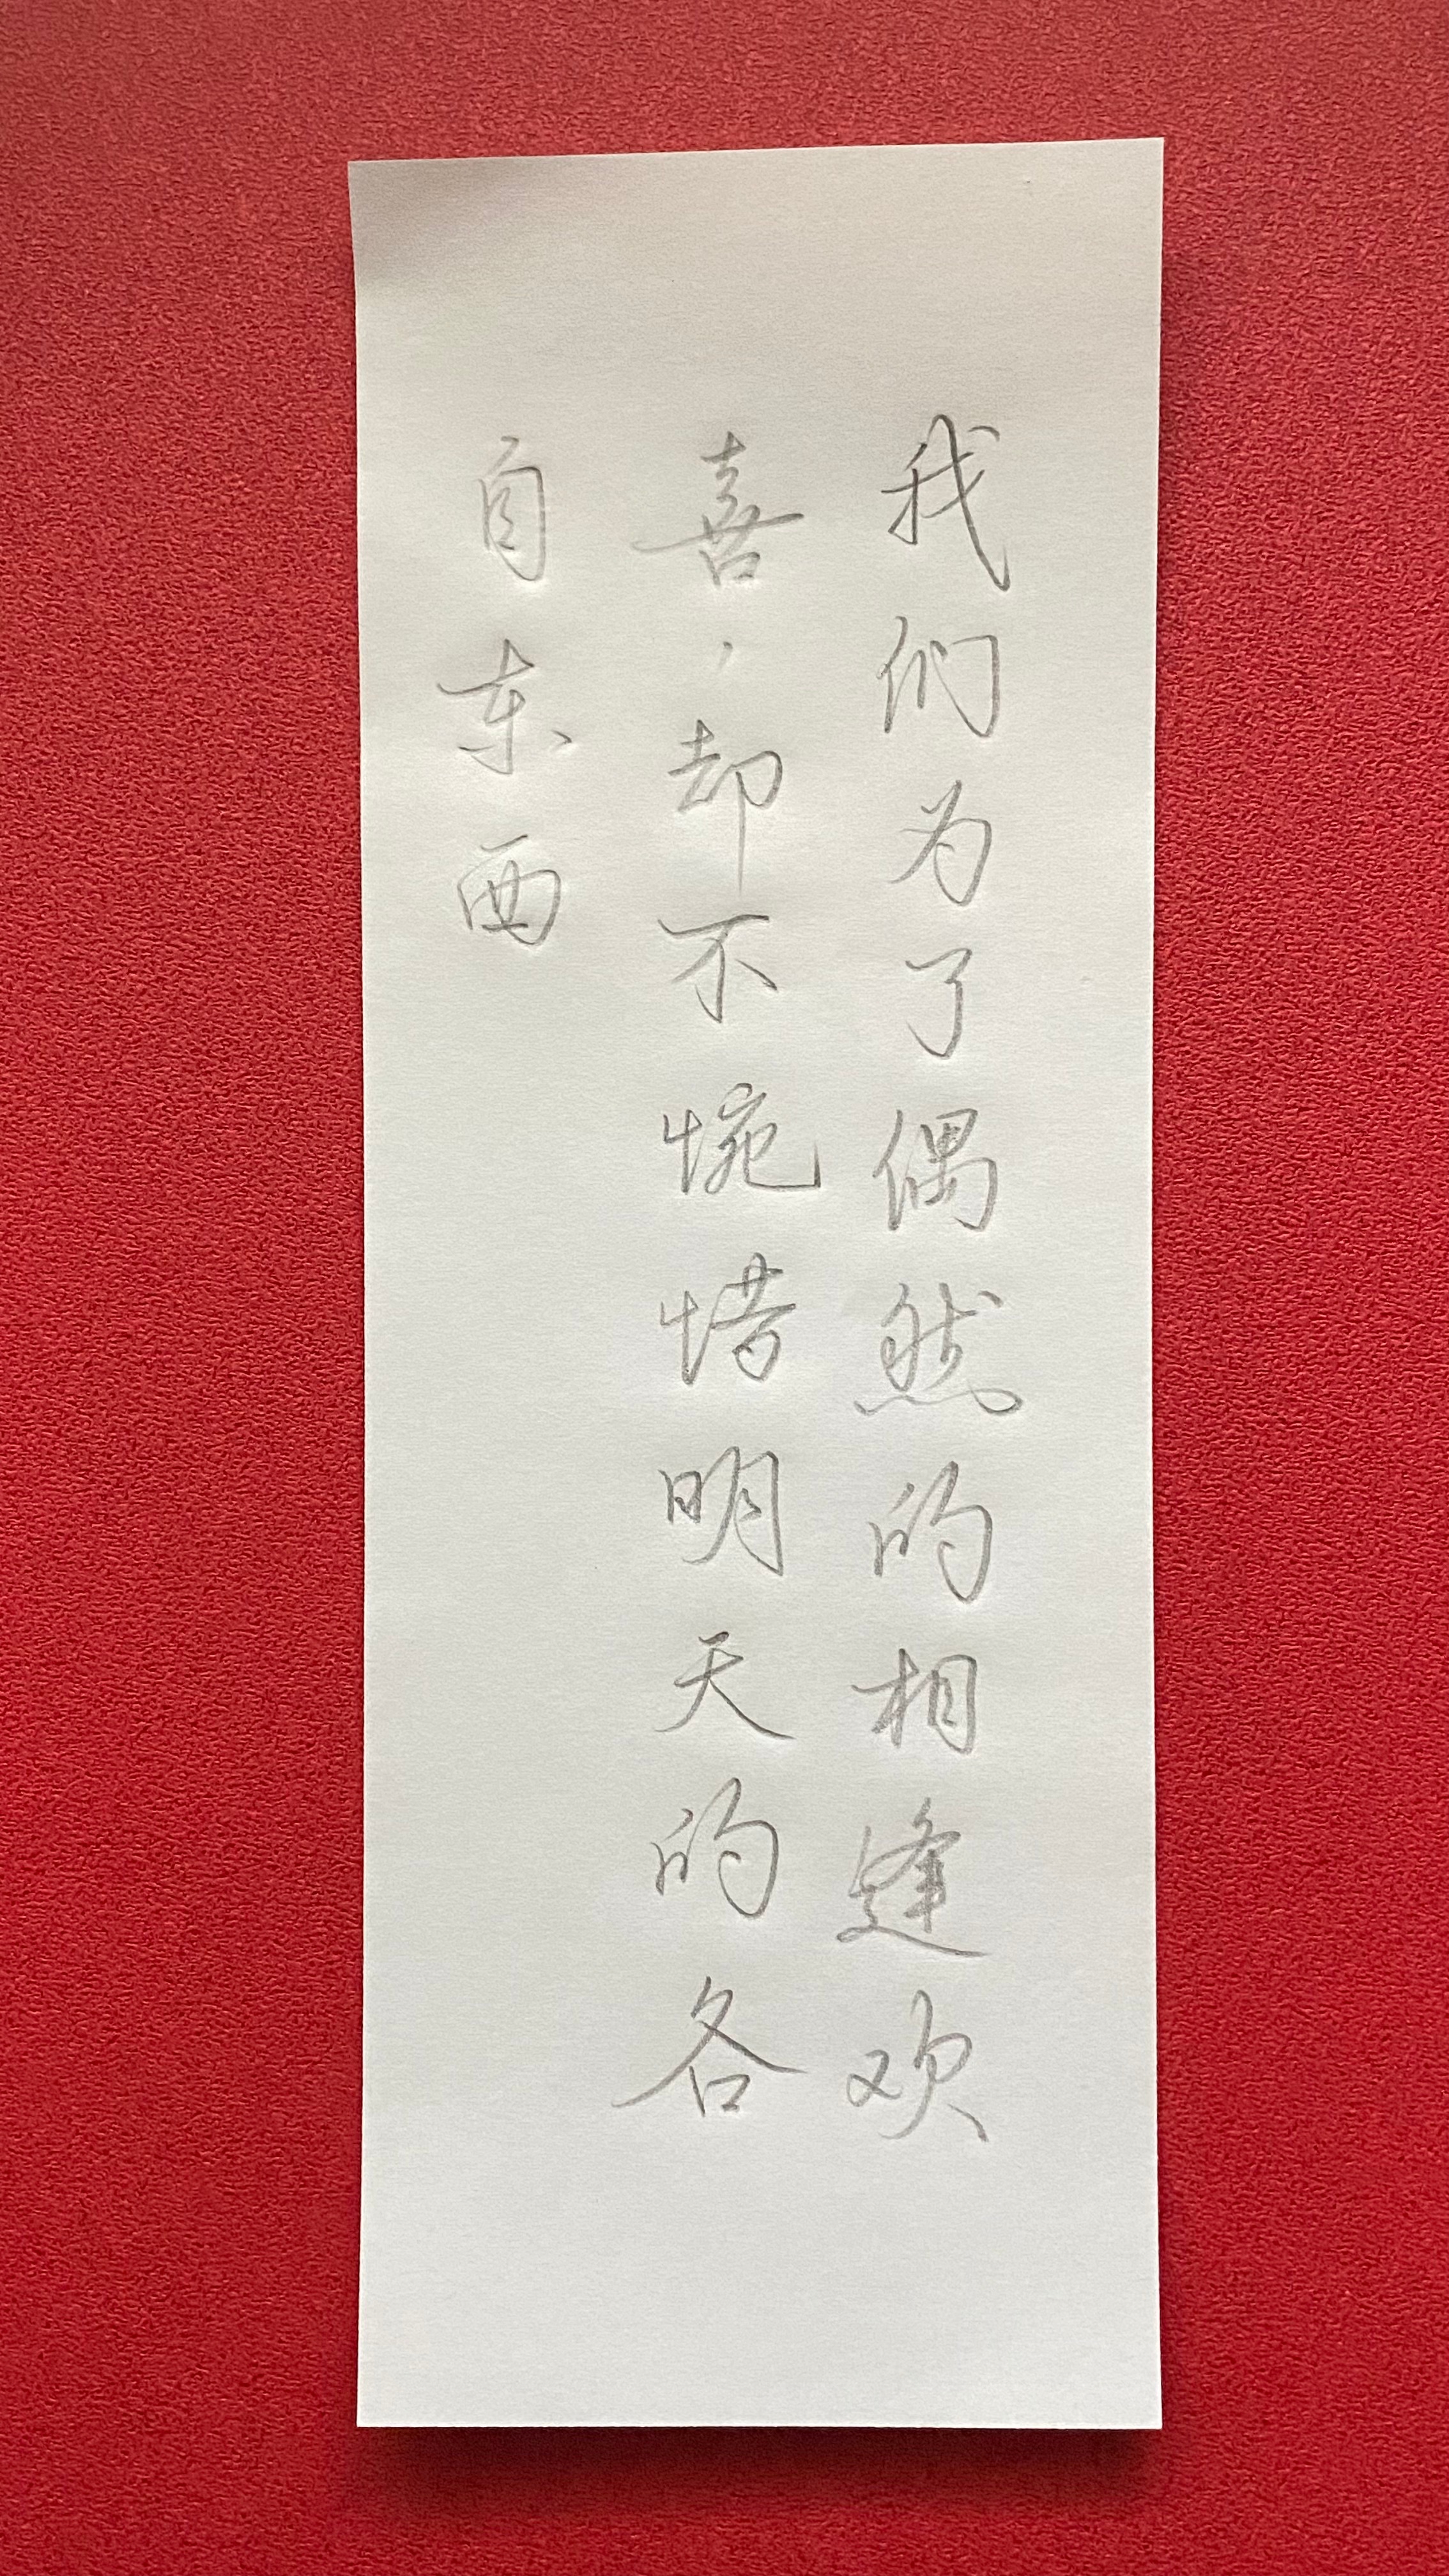 我们为了偶然的相逢欢
喜，却不惋惜明天的各
自东西